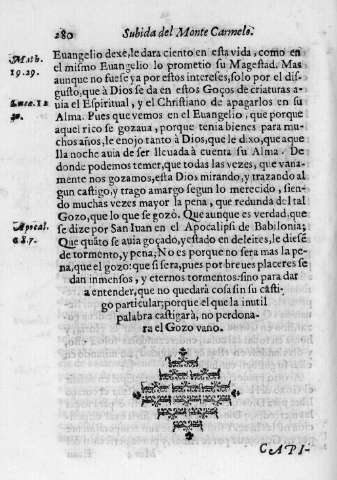 280 Subida del Monte Carmelo.
Math.
19.29.
Euangelio dexe, le dara ciento en esta vida, como en
el mismo Euangelio lo prometio su Magestad. Mas
aunque no fuese ya por estos intereses, solo por el dis-
gusto, que à Dios se da en estos Goços de criaturas a-
Lucæ. 12
uia el Espiritual, y el Christiano de apagarlos en su
Alma. Pues que vemos en el Euangelio, que porque
aquel rico se gozaua, porque tenia bienes para mu-
chos años, le enojo tanto à Dios, que le dixo, que aque
lla noche auia de ser lleuada à cuenta su Alma. De
donde podemos temer, que todas las vezes, que vana-
mente nos gozamos, esta Dios mirando, y trazando al
gun castigo, y trago amargo segun lo merecido, sien-
do muchas vezes mayor la pena, que redunda del tal
Gozo, que lo que se gozò. Que aunque es verdad, que
Apocal.
18 7.
se dize por San Iuan en el Apocalipsi de Babilonia;
Que quãto se auia goçado, y estado en deleites, le diesē
de tormento, y pena; No es porque no sera mas la pe-
na, que el gozo: que si sera, pues por breues placeres se
dan inmensos, y eternos tormentos: sino para dar
a entender, que no quedarà cosa sin su casti-
go particular; porque el que la inutil
palabra castigarà, no perdona-
ra el Gozo vano.
CAPI-